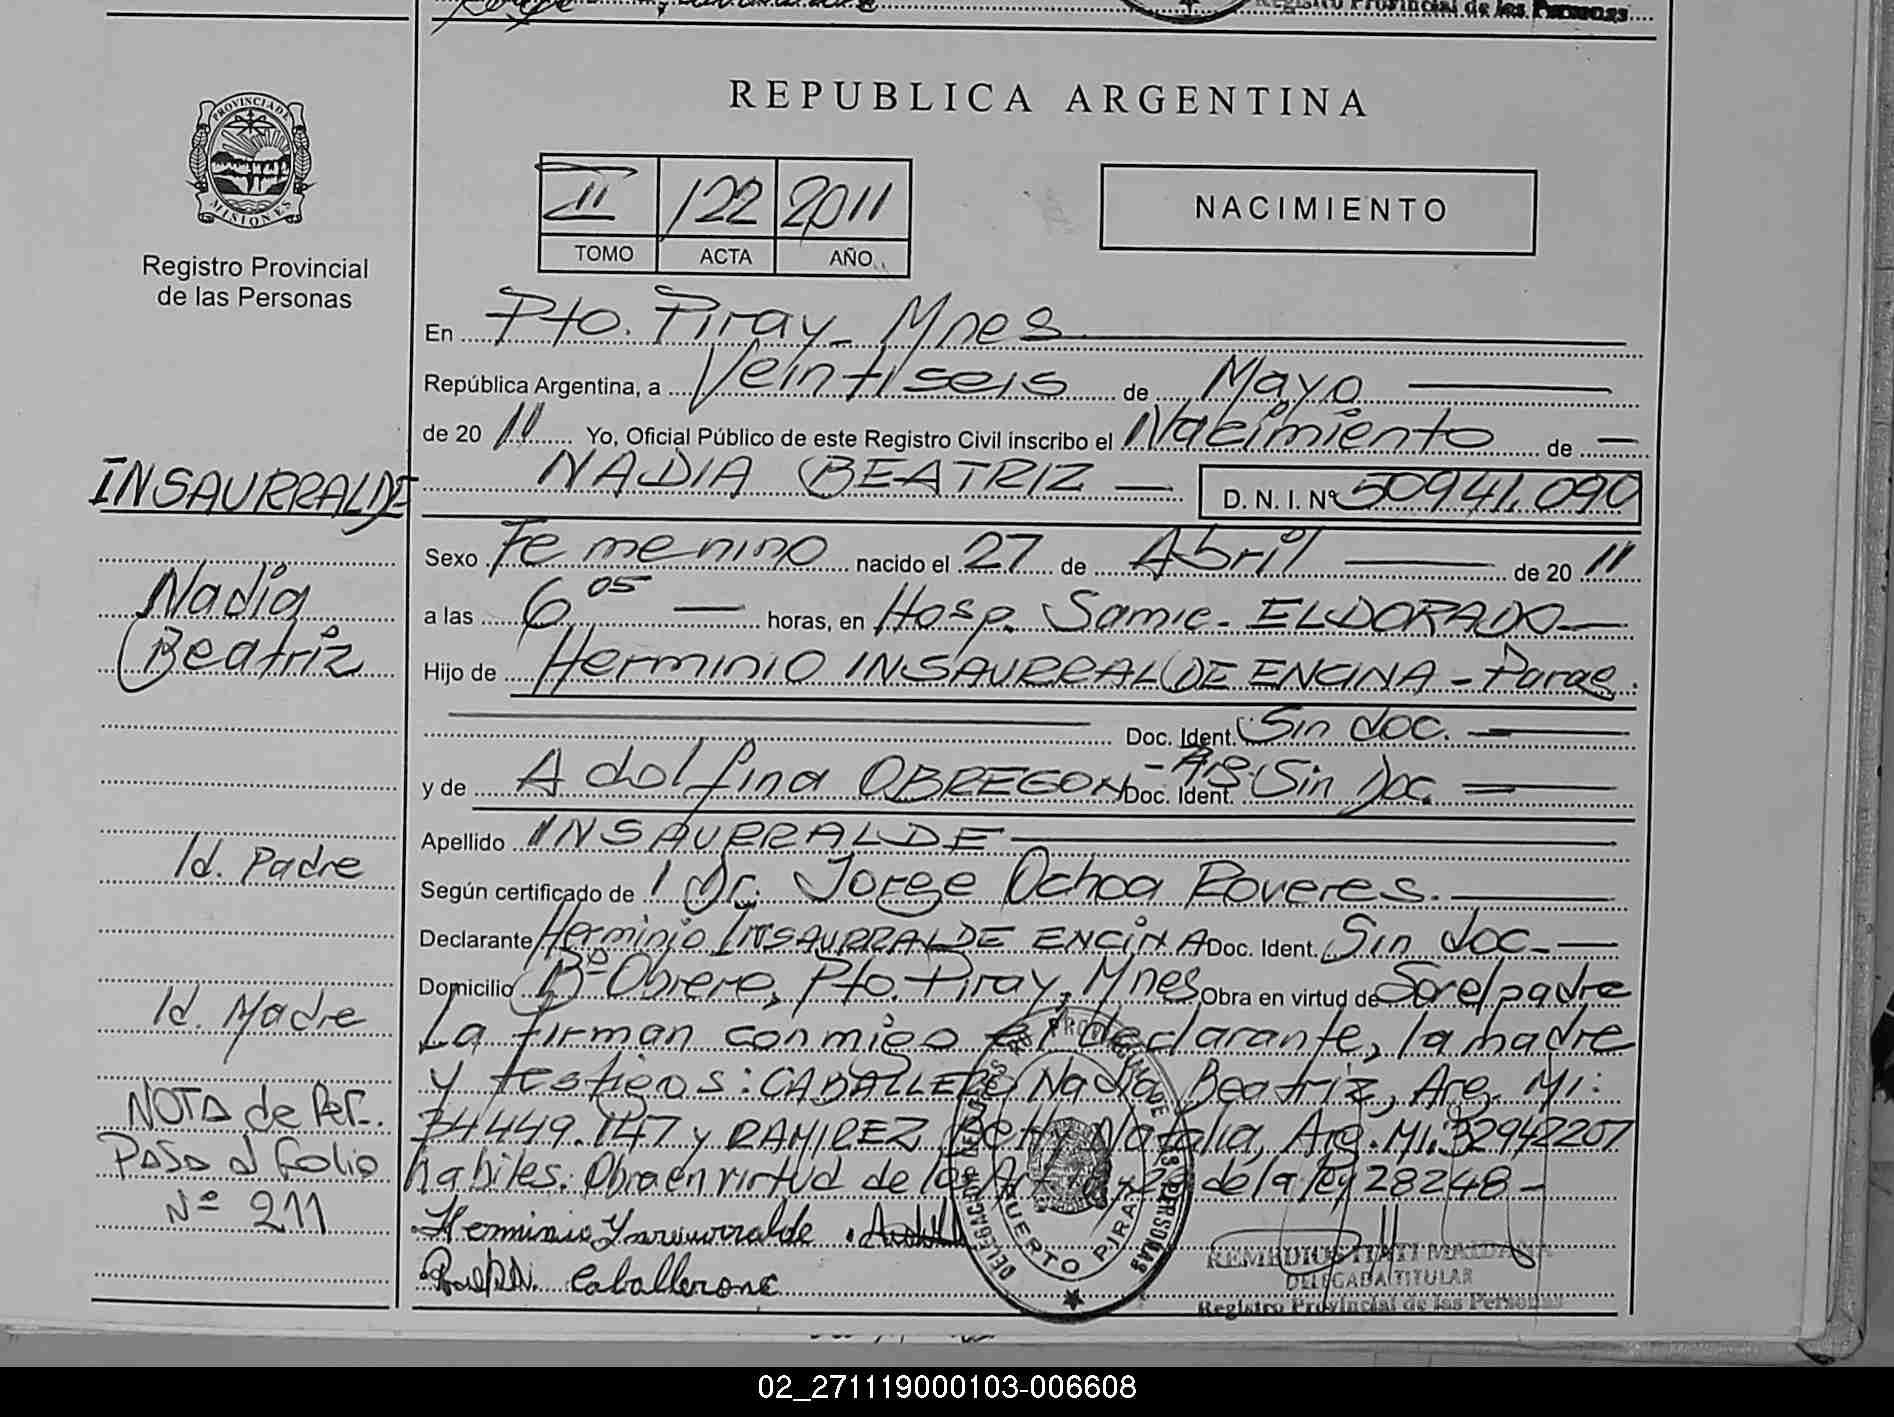 Registro Provincial de las Personas
REPUBLICA ARGENTINA
PROVINCIA DE
MISIONES
Registro Provincial
de las Personas
II 122 2011
TOMO ACTA AÑO
NACIMIENTO
En Pto. Piray - Mnes
República Argentina, a Veintiseis de Mayo
de 20 11 Yo, Oficial Público de este Registro Civil inscribo el Nacimiento de
NADIA BEATRIZ D. N. I. Nº 50941.090
Sexo Femenino nacido el 27 de Abril de 20 11
a las 6 05 horas, en Hosp. Samic - ELDORADO
Hijo de Herminio INSAURRALDE ENCINA - Parag.
Doc. Ident. Sin doc.
y de Adolfina OBREGON - Arg. Doc. Ident. Sin Doc.
Apellido INSAURRALDE
Según certificado de Dr. Jorge Ochoa Roveres.
Declarante Herminio INSAURRALDE ENCINA Doc. Ident. Sin doc.
Domicilio Bº Obrero, Pto. Piray, Mnes Obra en virtud de Ser el padre
La firman conmigo el declarante, la madre
y testigos: CABALLERO Nadia Beatriz, Arg. MI:
34449.147 y RAMIREZ Betty Natalia, Arg. MI: 32942207
habiles. Obra en virtud de los de la ley 28248 -
Herminio Insaurralde
Caballero
REMEDIOS ITATI MAIDANA
DELEGADA TITULAR
Registro Provincial de las Personas
PUERTO PIRAY
INSAURRALDE
Nadia
Beatriz
Id. Padre
Id. Madre
NOTA de Ref.
Pasa al folio
Nº 211
02_271119000103-006608